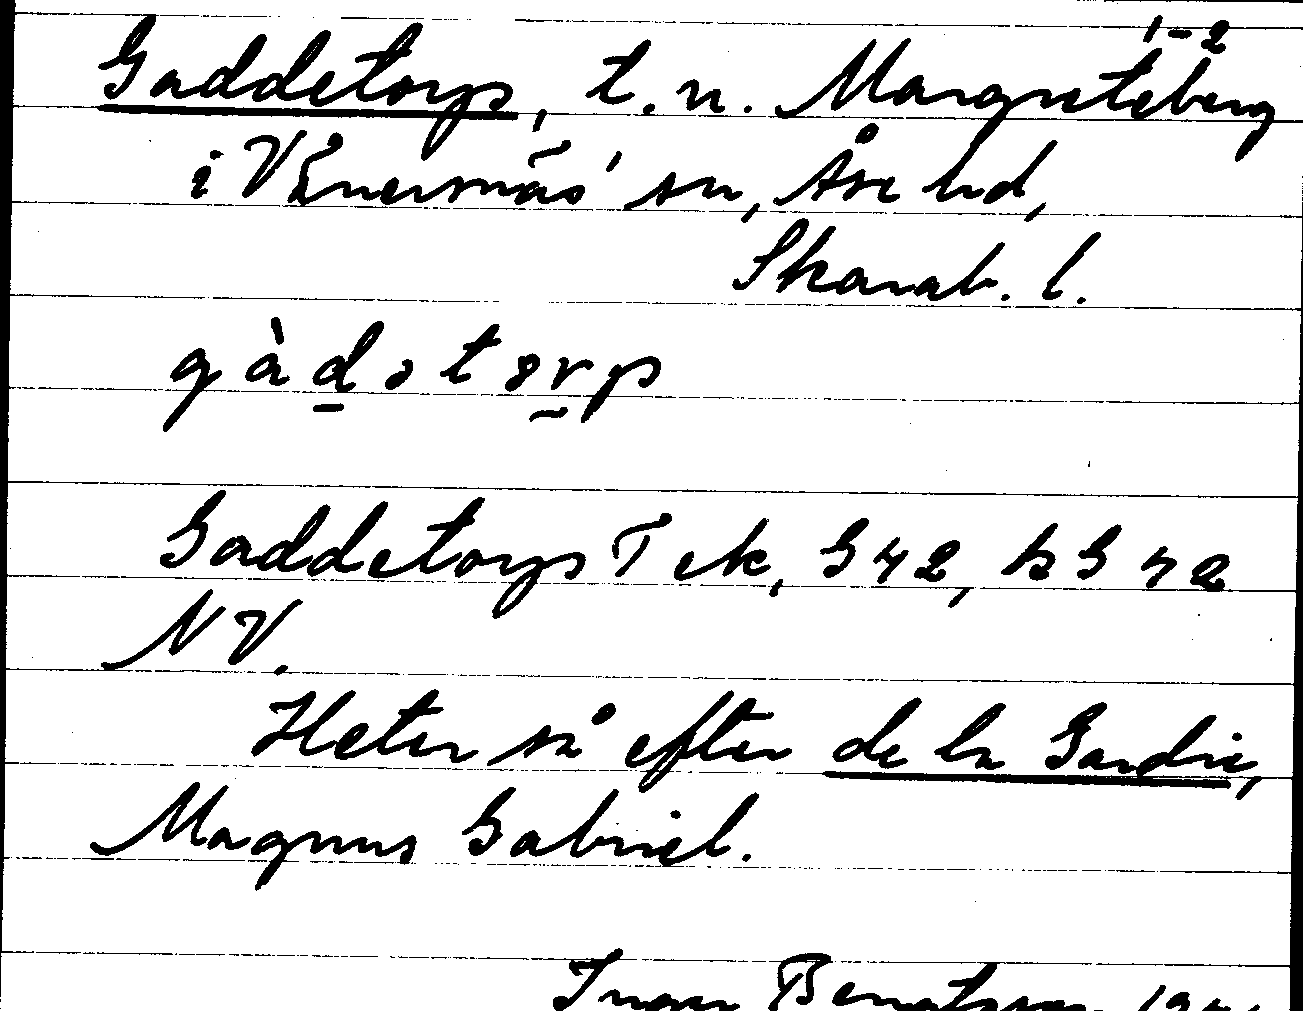 1-2
Gaddetorp, t. u. Margreteberg
i Vänersnäs' sn, Åse hd,
Skarab. l.
gàdətorp
Gaddetorp T ek, G 42, hS 42
NV.
Heter så efter de la Gardie,
Magnus Gabriel.
Ingvar Bengtsson